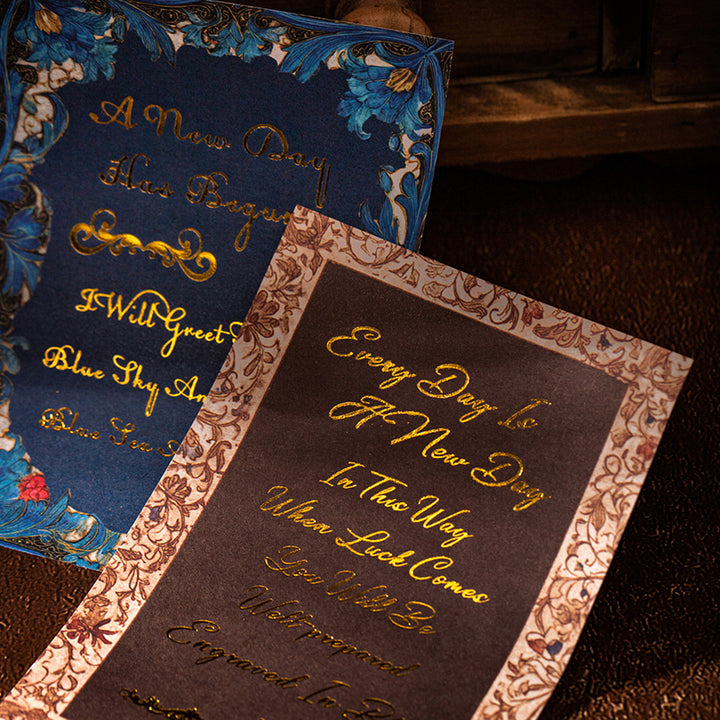 A New Day
Has Begun
I Will Greet
Blue Sky An
Blue Sea
Every Day Is
A New Day
In This Way
When Luck Comes
You Will Be
Well-prepared
Engraved In